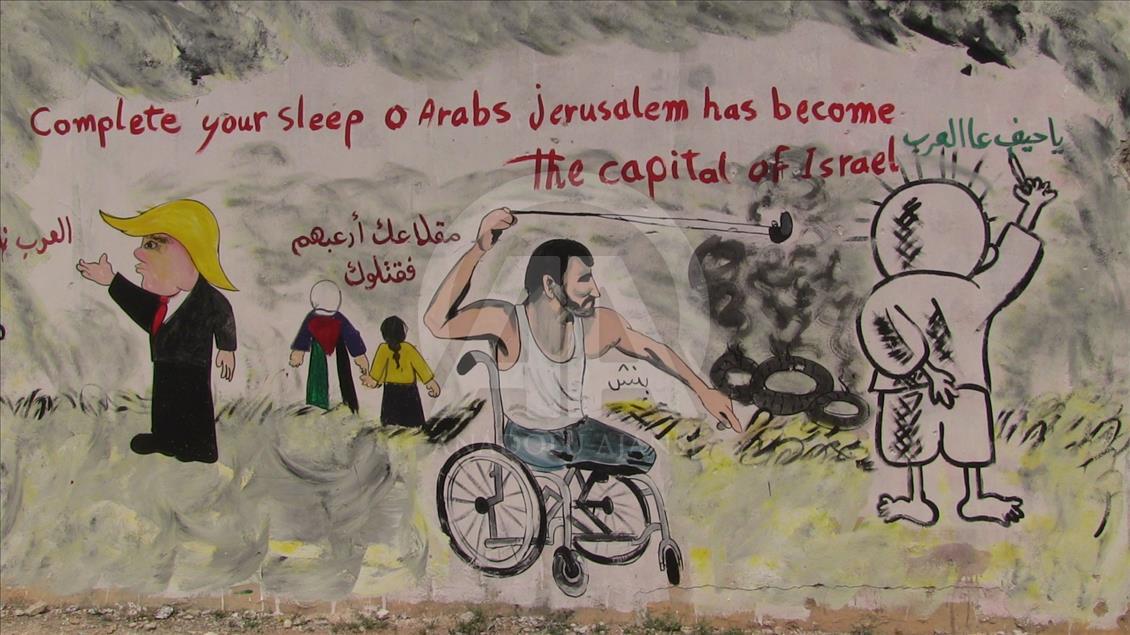 Complete your sleep o Arabs jerusalem has become
The capital of Israel
ياحيف عاالعرب
العرب
مقلاعك أرعبهم
فقتلوك
بنش
AA
ANADOLU AJANSI